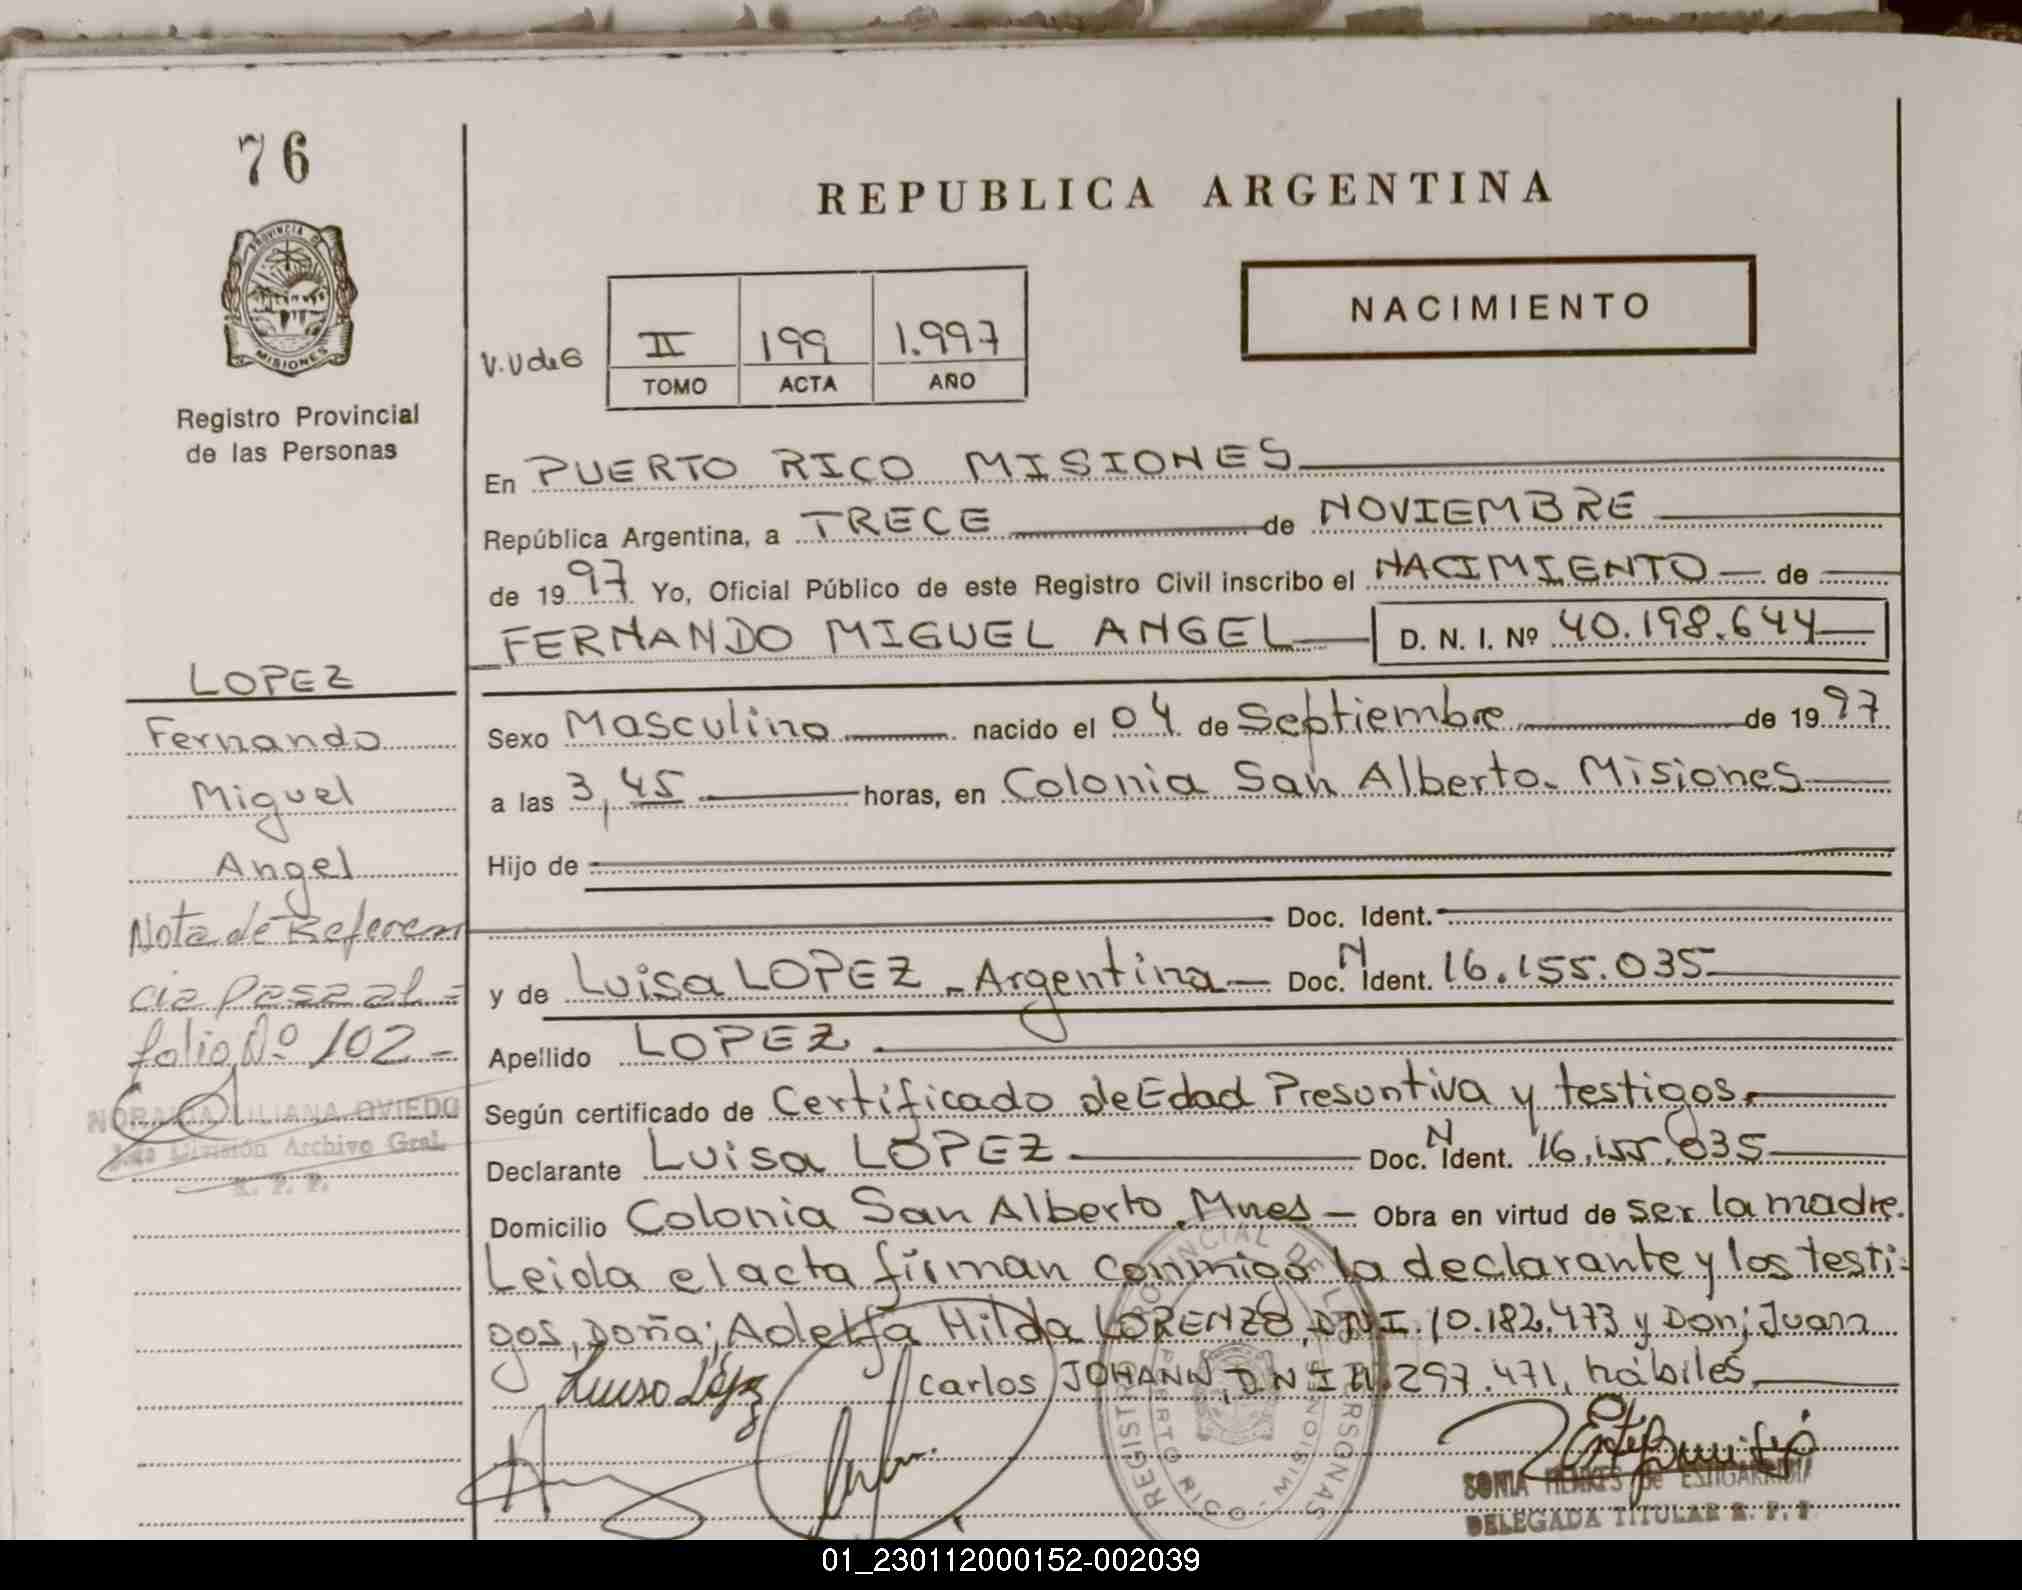 76
REPUBLICA ARGENTINA
PROVINCIA DE
MISIONES
NACIMIENTO
V.Ude6
II 199 1.997
TOMO ACTA AÑO
Registro Provincial
de las Personas
En PUERTO RICO MISIONES
República Argentina, a TRECE de NOVIEMBRE
de 1997 Yo, Oficial Público de este Registro Civil inscribo el NACIMIENTO de
FERNANDO MIGUEL ANGEL D. N. I. Nº 40.198.644
LOPEZ
Fernando
Miguel
Angel
Sexo Masculino nacido el 04 de Septiembre de 1997
a las 3,45 horas, en Colonia San Alberto. Misiones
Hijo de
Doc. Ident.
Nota de Referen
cia
folio Nº 102 -
y de Luisa LOPEZ - Argentina - Doc. N Ident. 16.155.035
Apellido LOPEZ
NORANJA LILIANA OVIEDO
División Archivo Gral.
R. P. P.
Según certificado de Certificado de Edad Presuntiva y testigos.
Declarante Luisa LOPEZ Doc. N Ident. 16.155.035
Domicilio Colonia San Alberto. Mnes - Obra en virtud de ser la madre.
Leida el acta firman conmigo la declarante y los testi-
gos, Doña; Adelfa Hilda LORENZO, DNI. 10.182.473 y Don; Juan
Carlos JOHANN, DNI 11.297.471, hábiles.
Luisa López
REGISTRO PROVINCIAL DE LAS PERSONAS
PUERTO RICO - MISIONES
SONIA de ESTIGARRIBIA
DELEGADA TITULAR R. P. P.
01_230112000152-002039